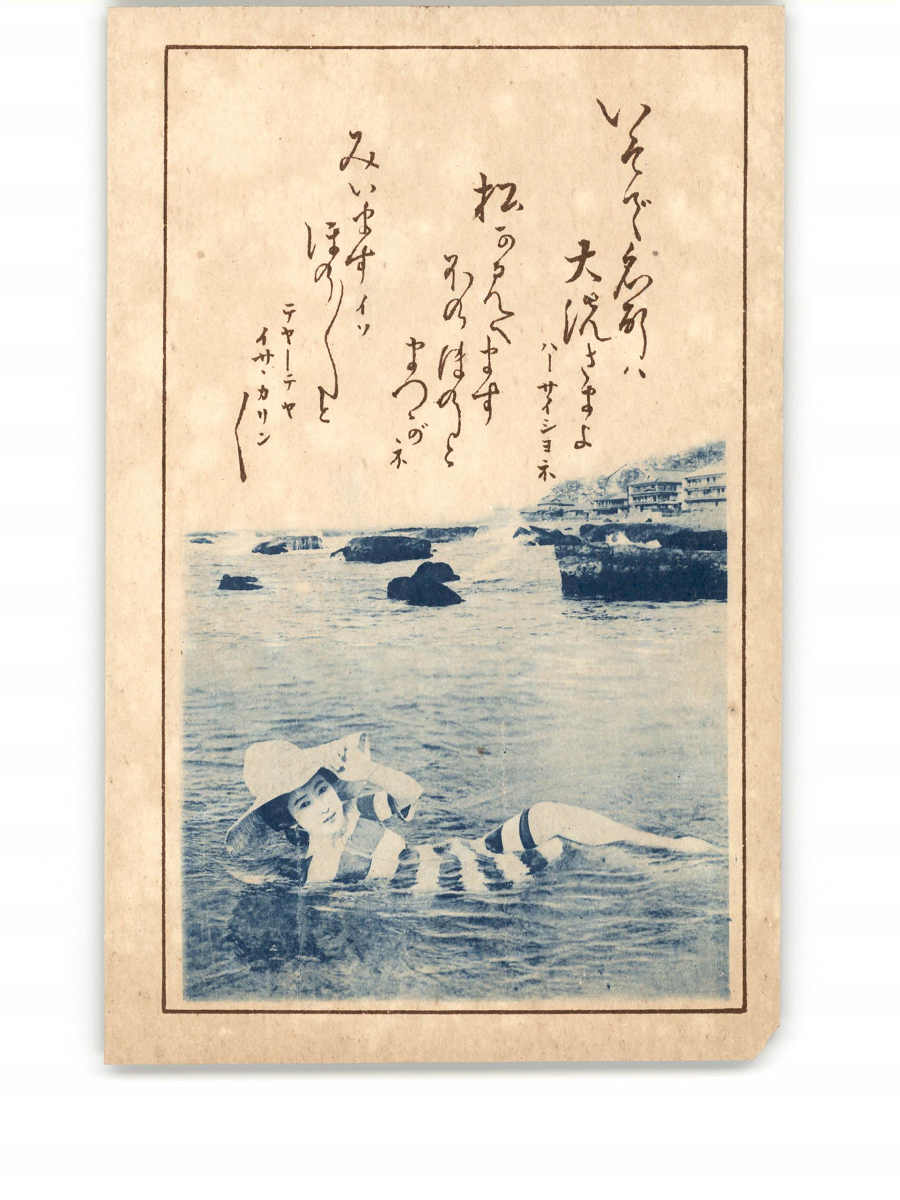 いそで名所ハ
大洗さまよ
ハーサイショネ
松か見へます
ほのほのと
まつがネ
みいますイソ
ほの〱と
テヤーテヤ
イサヽカリン〱